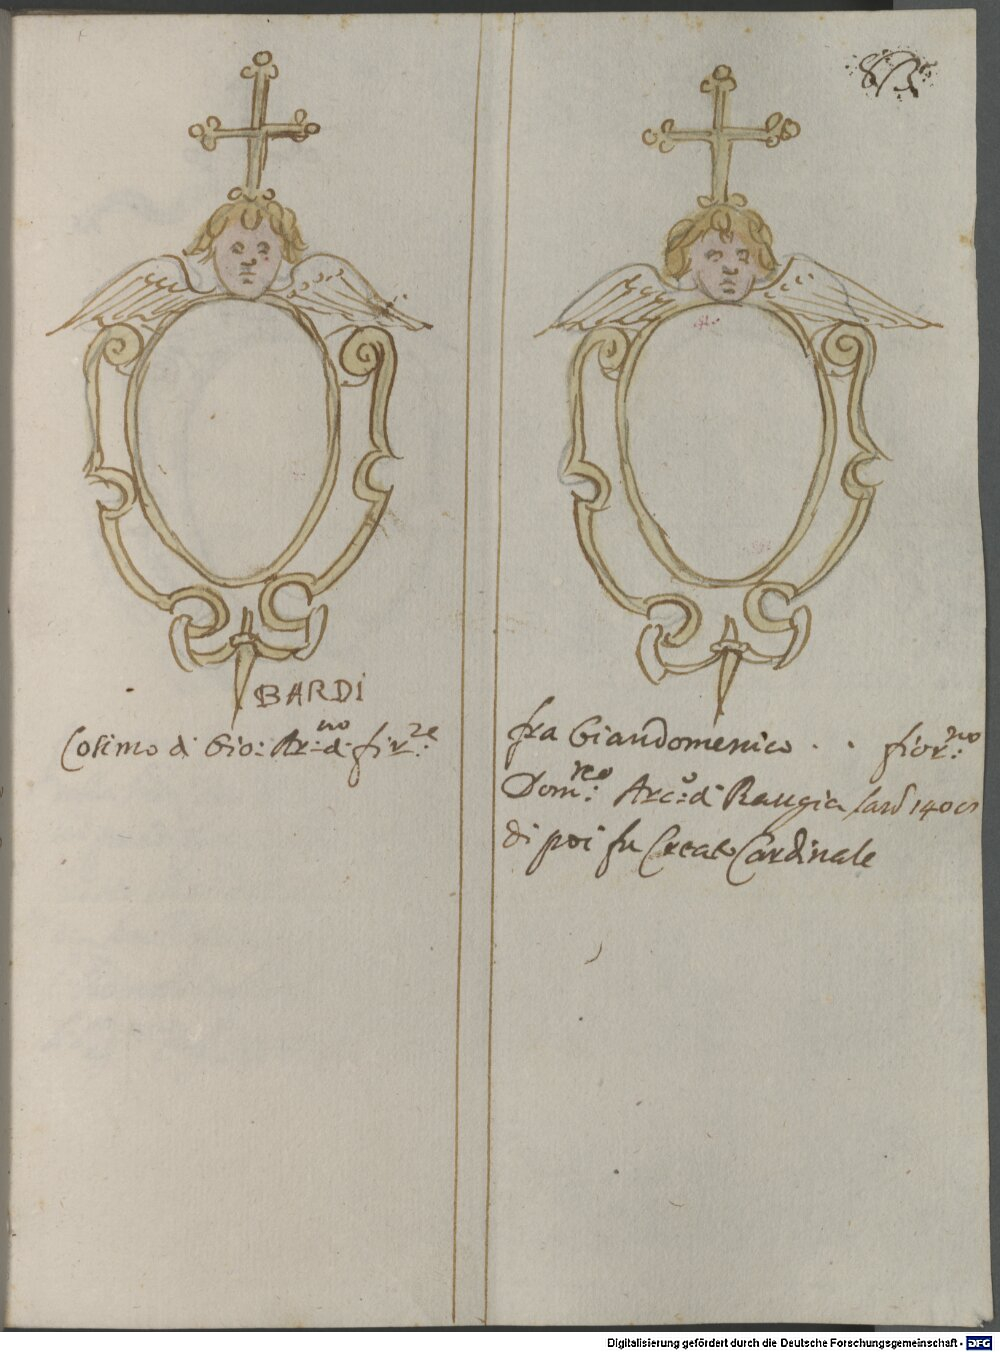 BARDI
Cosimo di Gio: Ar:no di fir:ze
fra Giandomenico . . fior:no
Dom:co Arc:o di Raugia
di poi fu Creato Cardinale
Digitalisierung gefördert durch die Deutsche Forschungsgemeinschaft - DFG